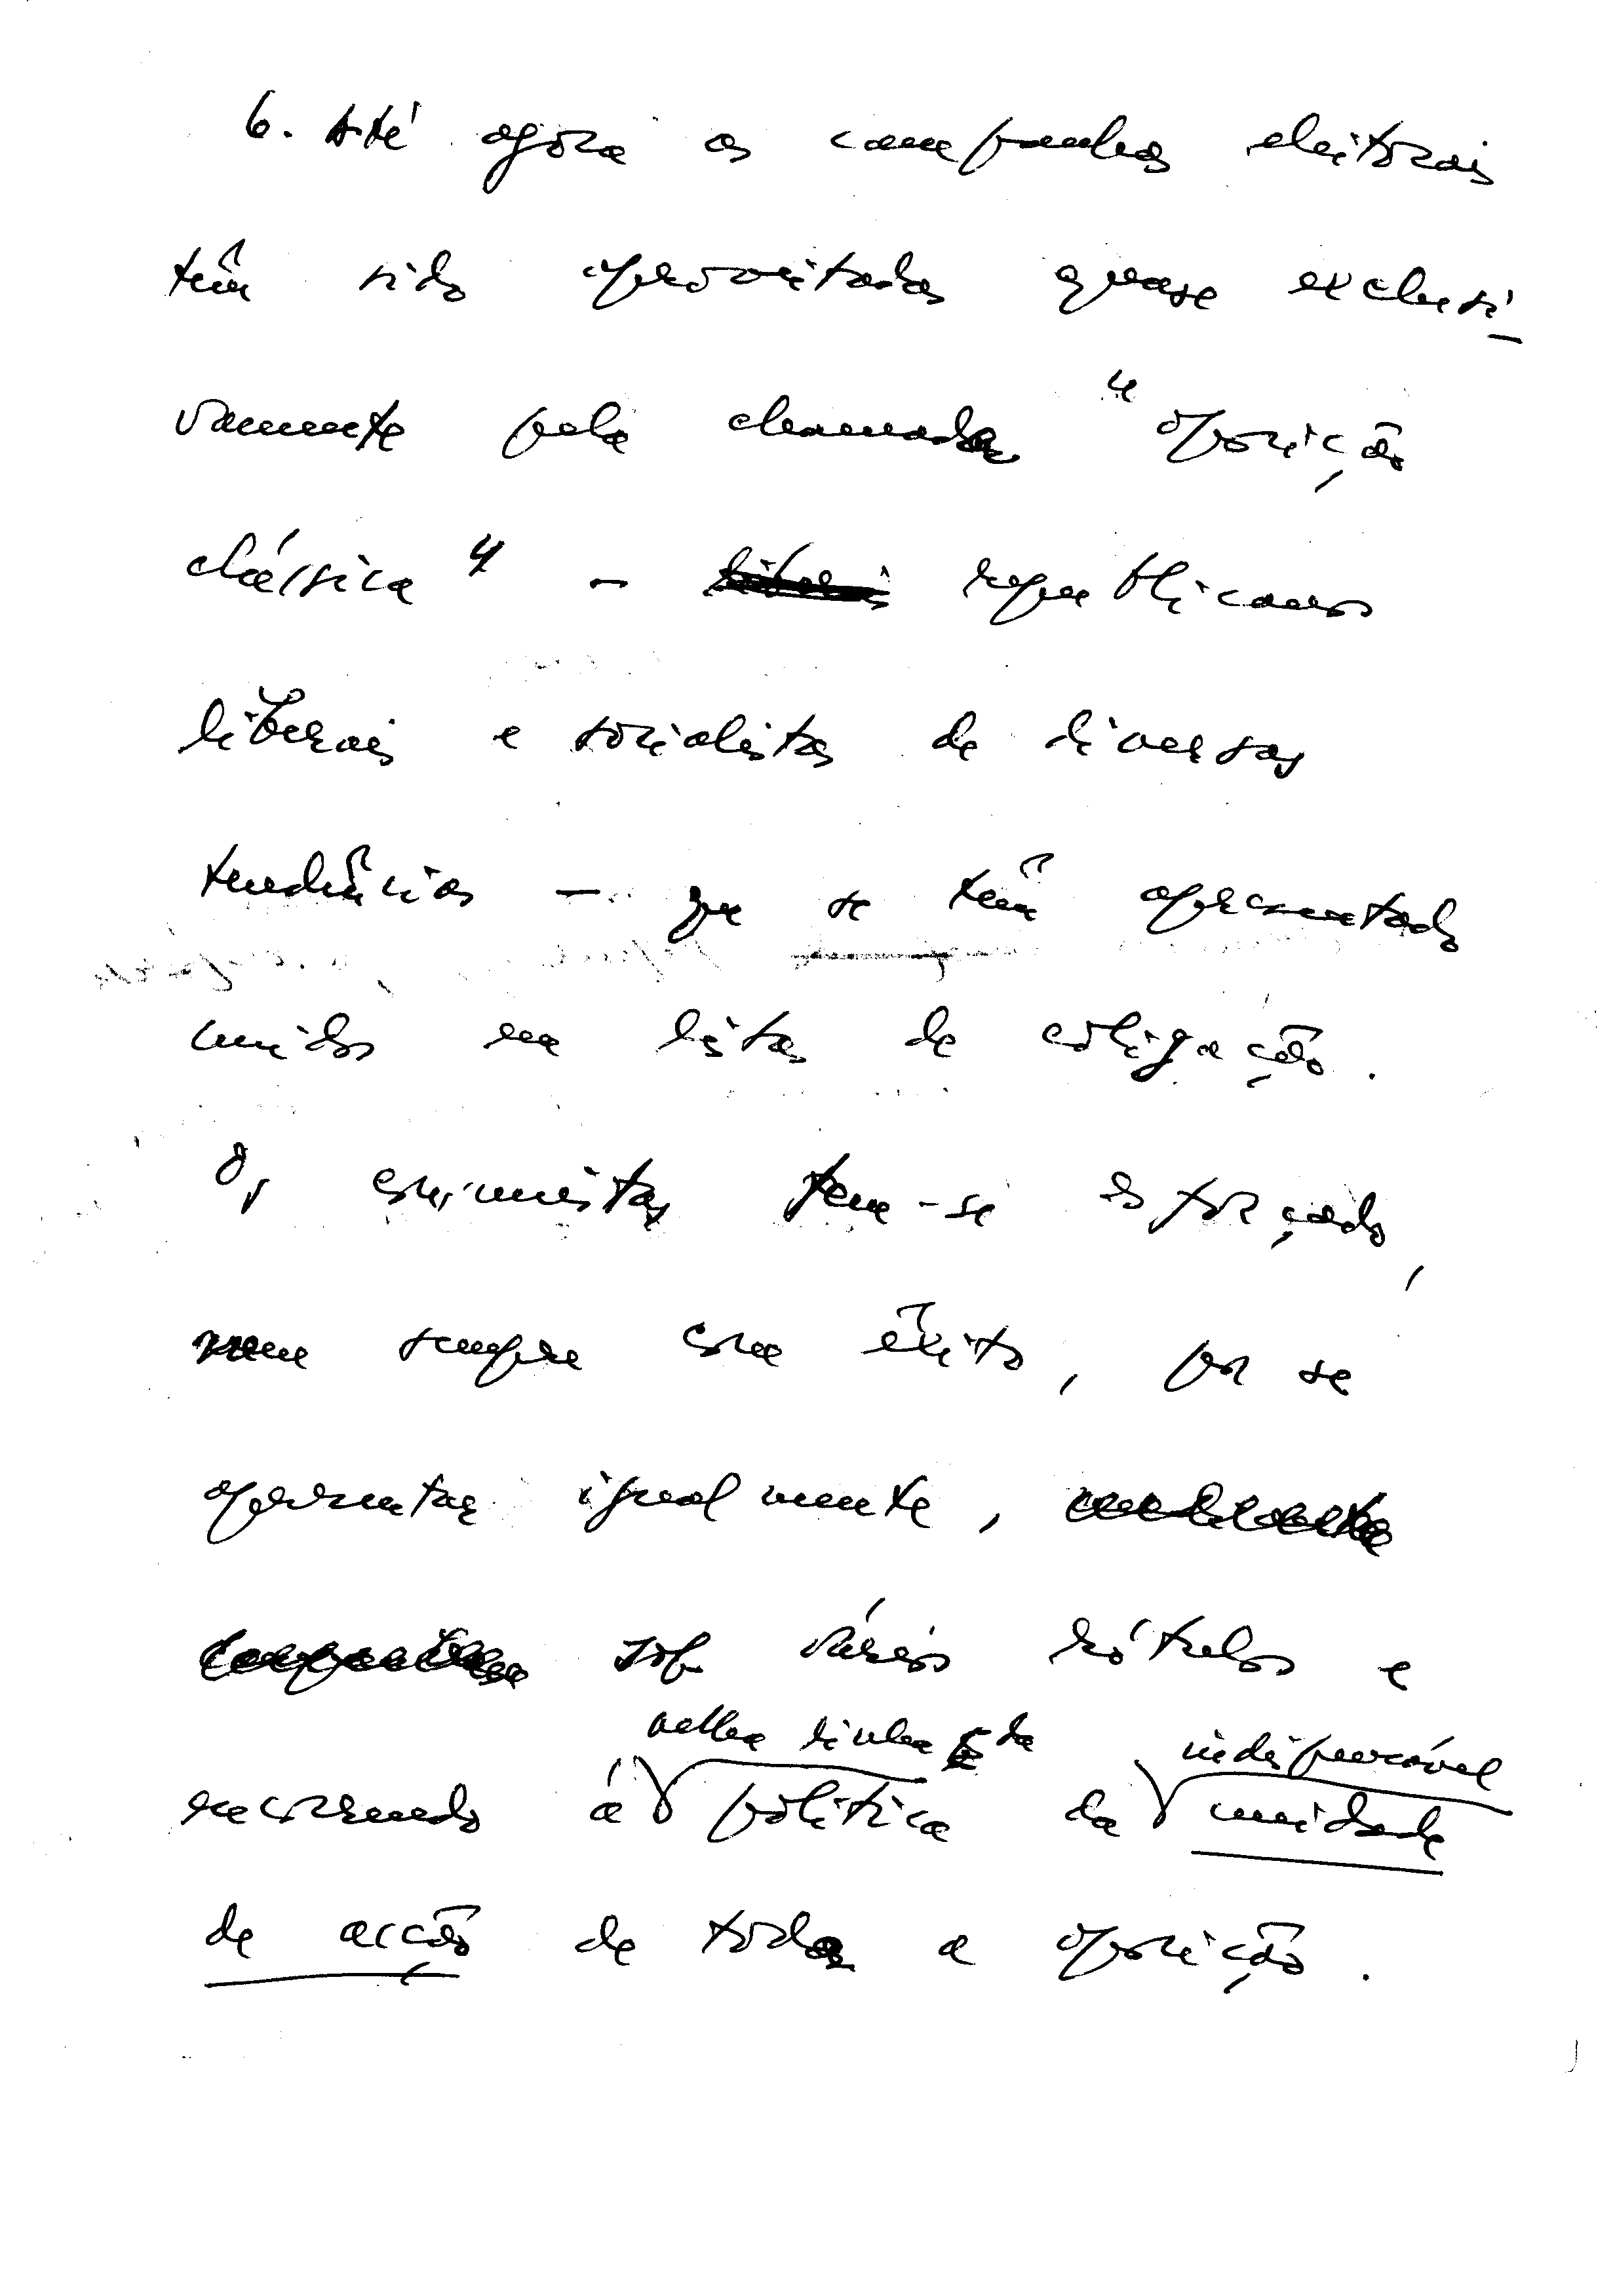 6. Até agora as campanhas eleitorais
têm sido aproveitadas quase exclusi-
vamente pela chamada "oposição
clássica" - republicanos
liberais e socialistas de diversas
tendências — que se têm apresentado
unidos em listas de coligação.
Os comunistas tem-se esforçado,
nem sempre com êxito, por se
apresentar igualmente,
sob vários rótulos e
velha linha da indispensável
recorrendo à política da unidade
de acção de toda a oposição.